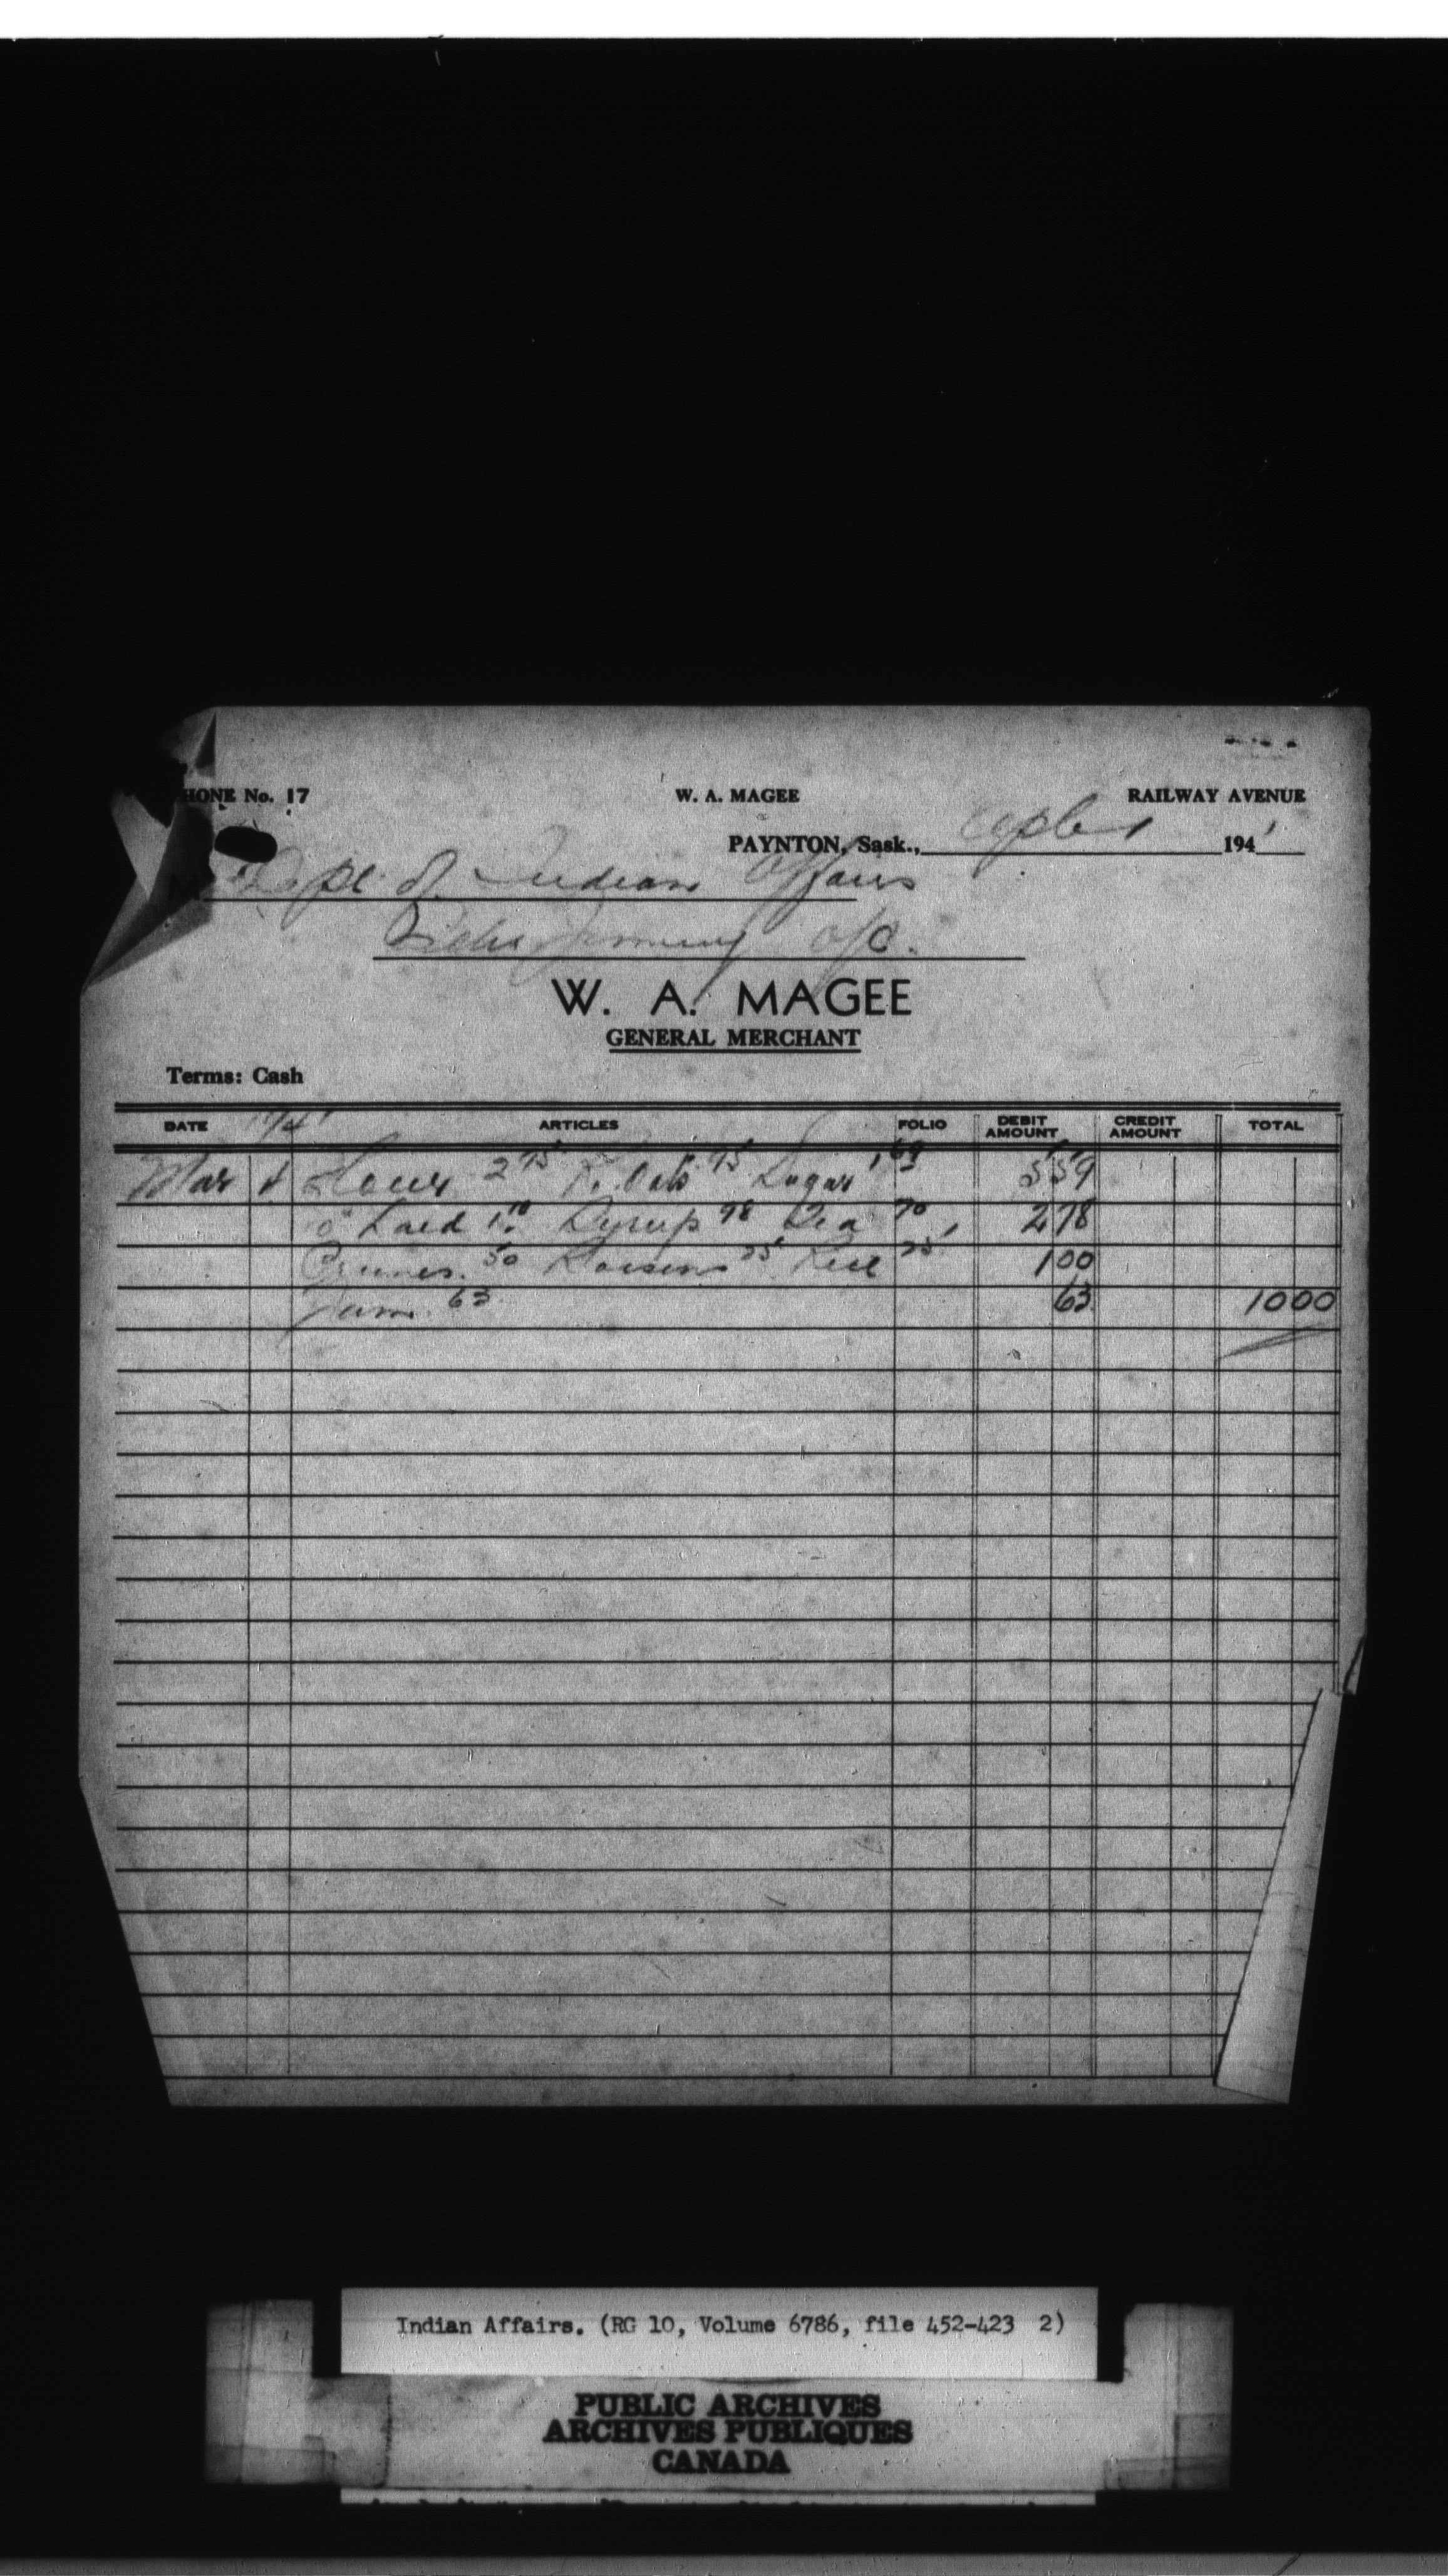 HONE No. 17 W. A. MAGEE RAILWAY AVENUE
PAYNTON, Sask., 194
Dept. of Indian Affairs
a/c.
W. A. MAGEE
GENERAL MERCHANT
Terms: Cash
DATE ARTICLES FOLIO DEBIT AMOUNT CREDIT AMOUNT TOTAL
Mar Flour 2 95 R. Oats 95 Sugar 1 69 5 59
Lard 1 10 Syrup 98 Tea 70 2 78
Prunes 50 Raisins 25 Rice 25 1 00
Jam 63 63 10 00
Indian Affairs. (RG 10, Volume 6786, file 452-423 2)
PUBLIC ARCHIVES
ARCHIVES PUBLIQUES
CANADA